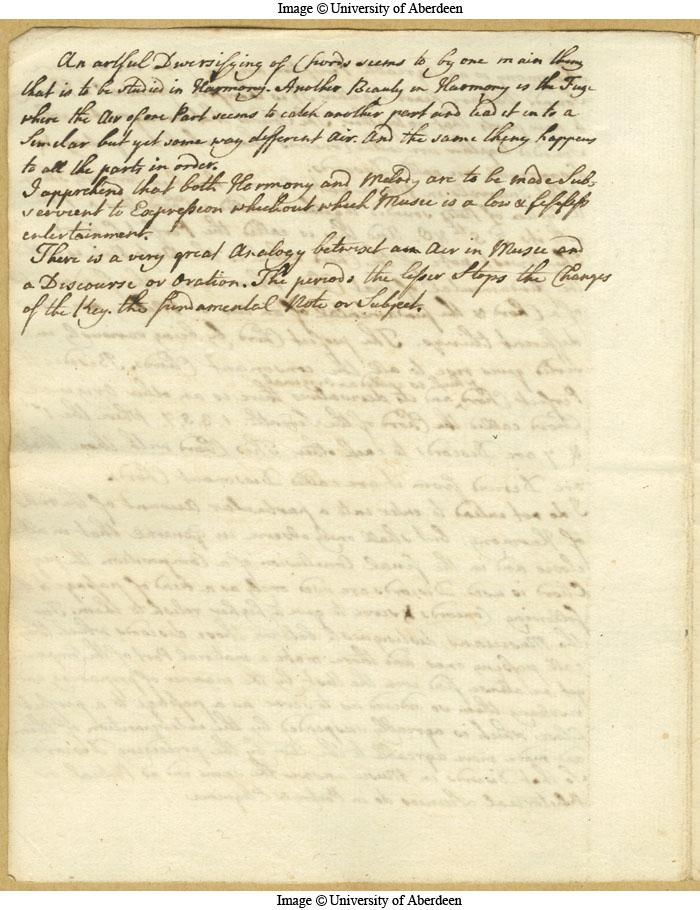 Image © University of Aberdeen
An artful Diversifying of Chords seems to by one main thing
that is to be studied in Harmony. Another Beauty in Harmony is the Fuge
where the Air of one Part seems to catch another part and lead it in to a
Similar but yet some way different Air. And the same thing happens
to all the parts in order.
I apprehend that both Harmony and Melody are to be made Sub-
servient to Expression without which Music is a low &
entertainment.
There is a very great Analogy betwixt an Air in Music and
a Discourse or Oration. The periods the lesser Stops the Changes
of the Key. the fundamental Note or Subject.
Image © University of Aberdeen